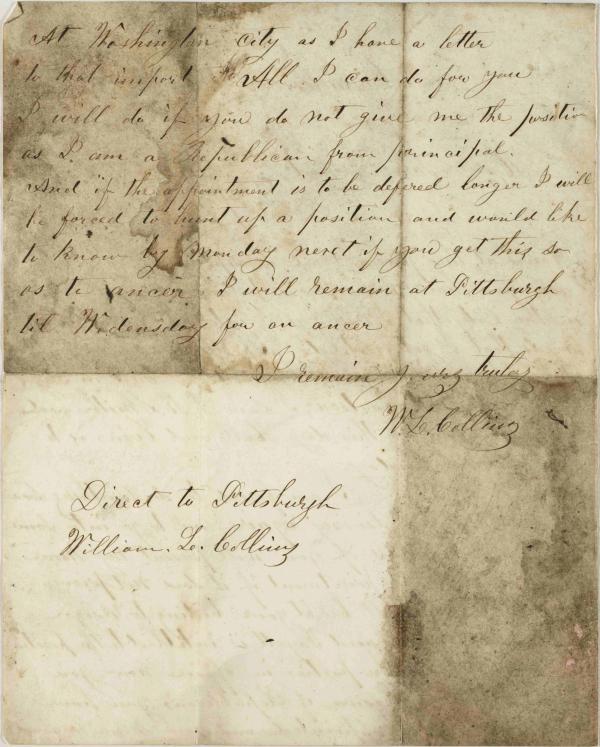 At Washington city as I have a letter
to that import All I can do for you
I will do if you do not give me the position
as I am a Republican from principal.
And if the appointment is to be defered longer I will
be forced to hunt up a position and would like
to know by Monday next if you get this so
as to ancer I will remain at Pittsburgh
til Wedensday for an ancer
I remain yours truley
W. L. Collins
Direct to Pittsburgh
William. L. Collins